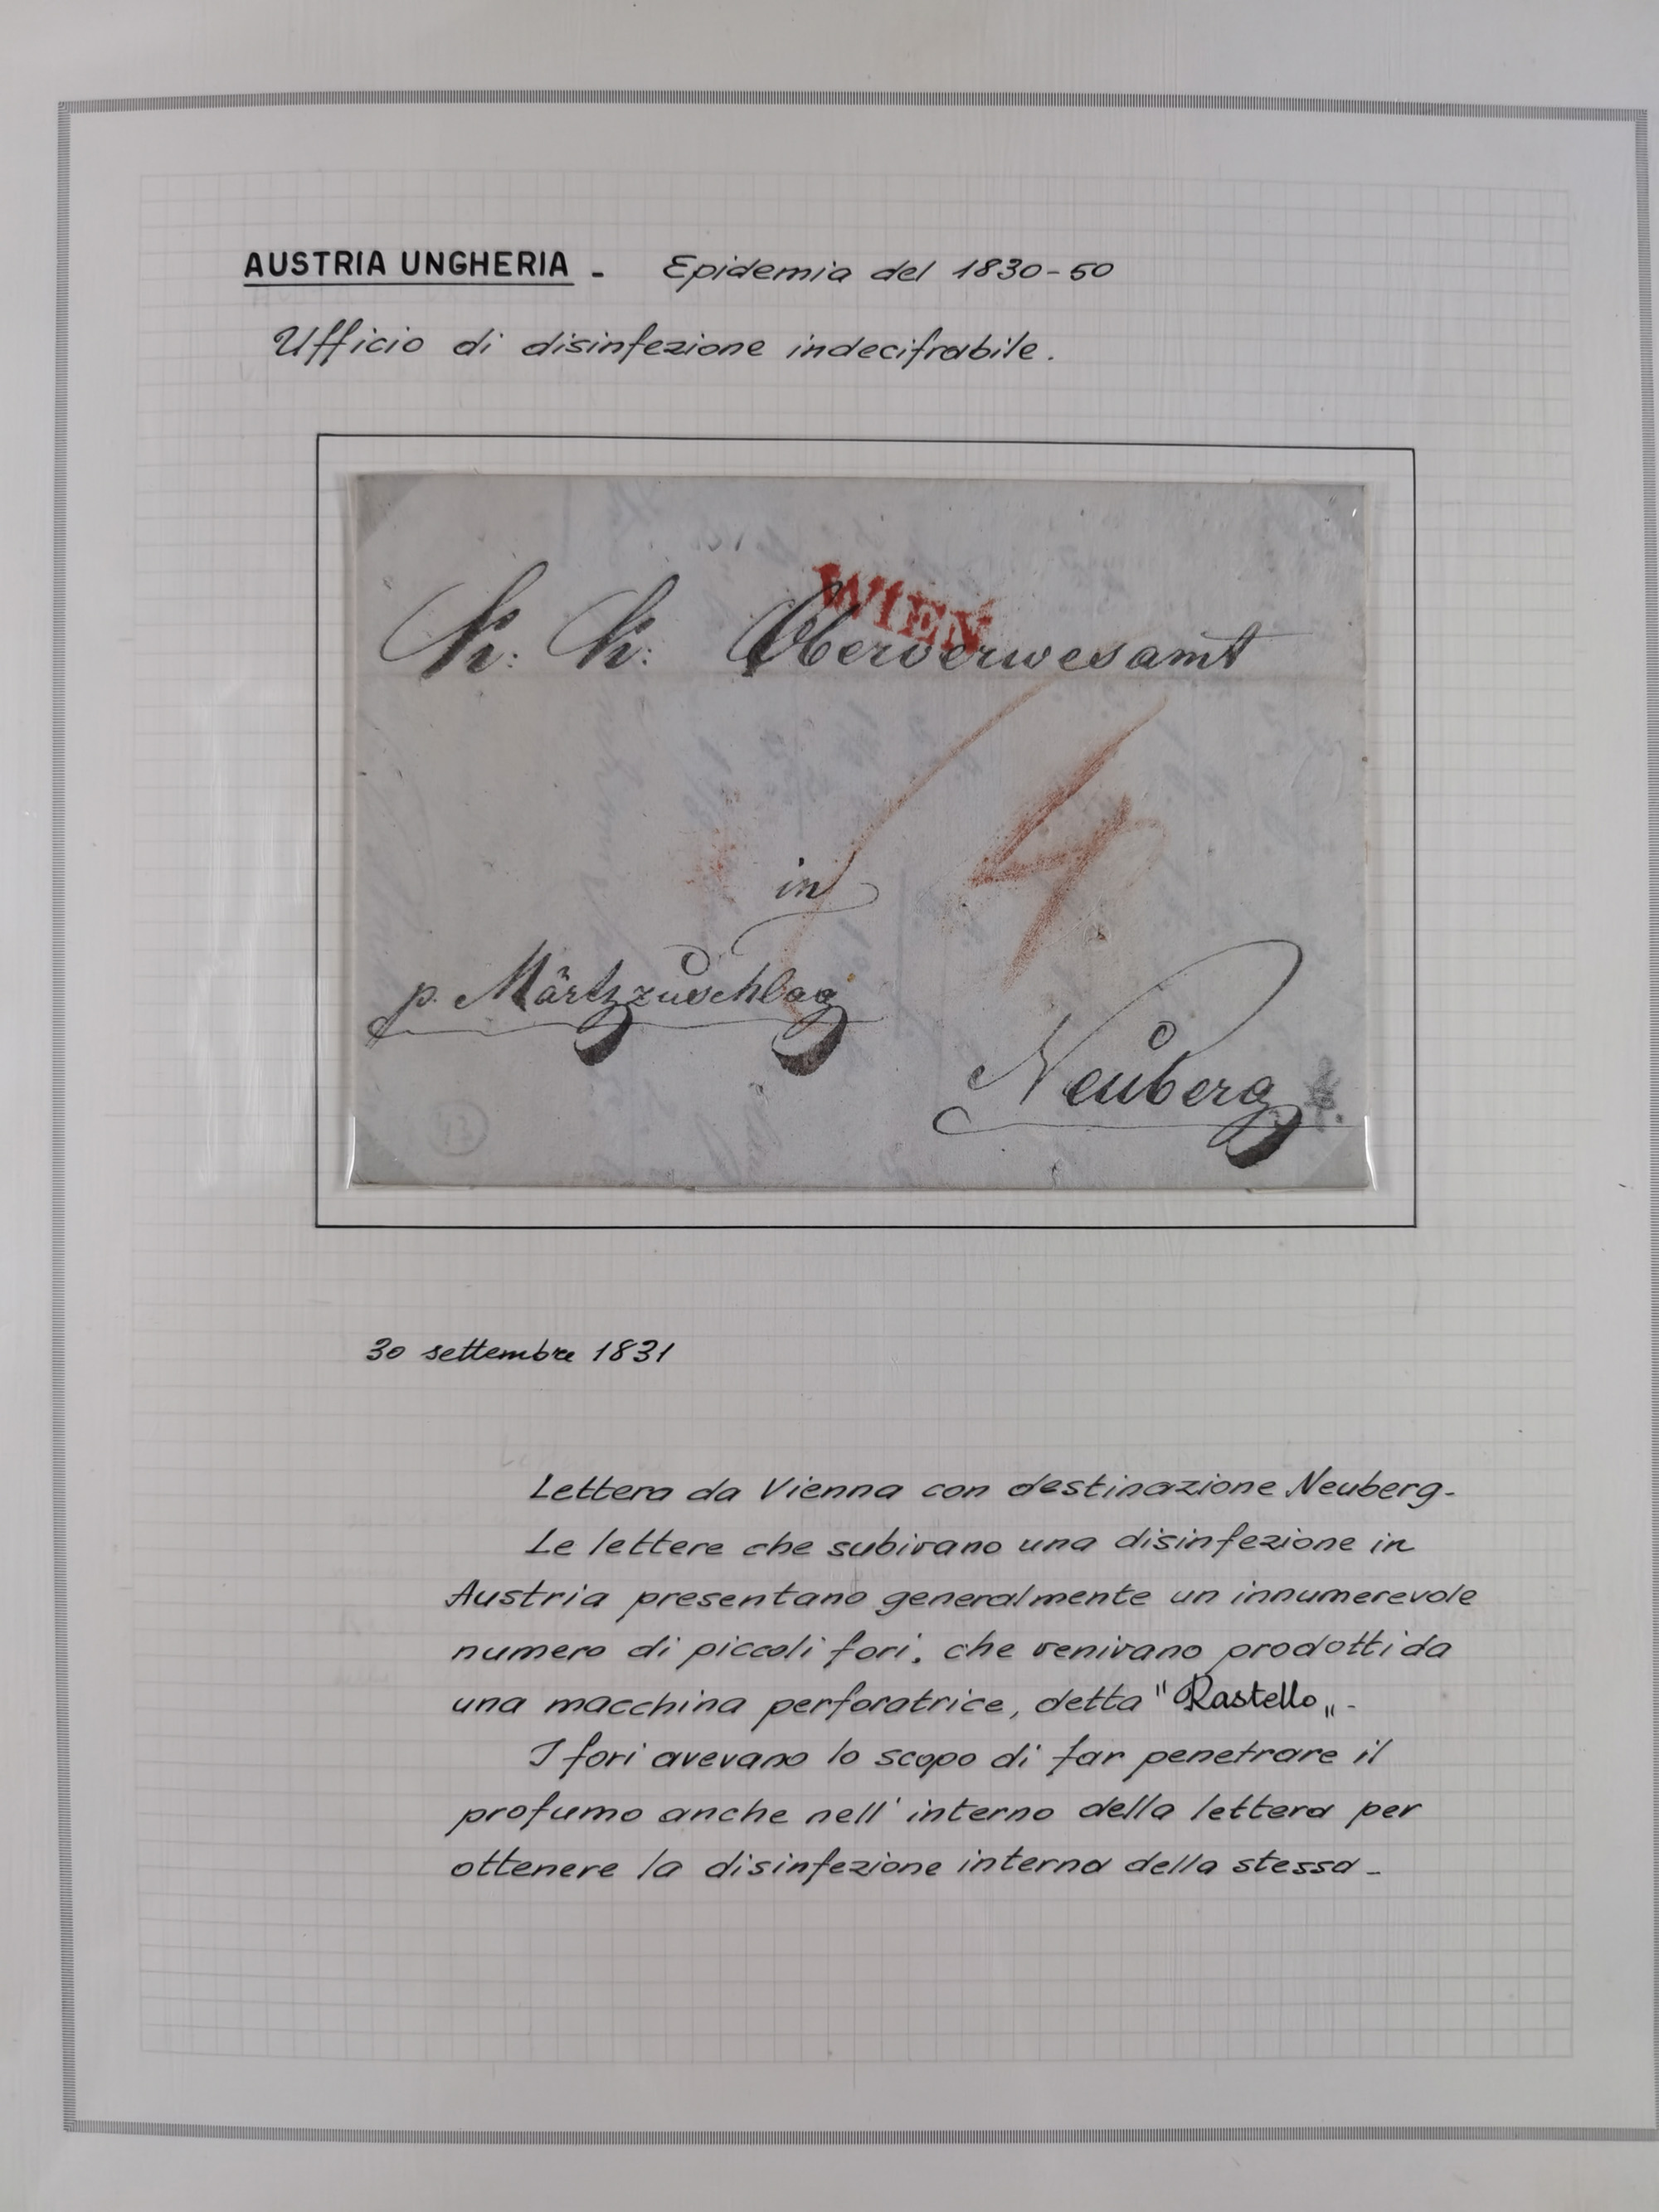 AUSTRIA UNGHERIA - Epidemia del 1830-50
Ufficio di disinfezione indecifrabile.
WIEN
K: K: Oberverwesamt
4
in
p. Märtzzuschlag
Neuberg
13
30 settembre 1831
Lettera da Vienna con destinazione Neuberg-
Le lettere che subivano una disinfezione in
Austria presentano generalmente un innumerevole
numero di piccoli fori, che venivano prodotti da
una macchina perforatrice, detta "Rastello„-
I fori avevano lo scopo di far penetrare il
profumo anche nell'interno della lettera per
ottenere la disinfezione interna della stessa-